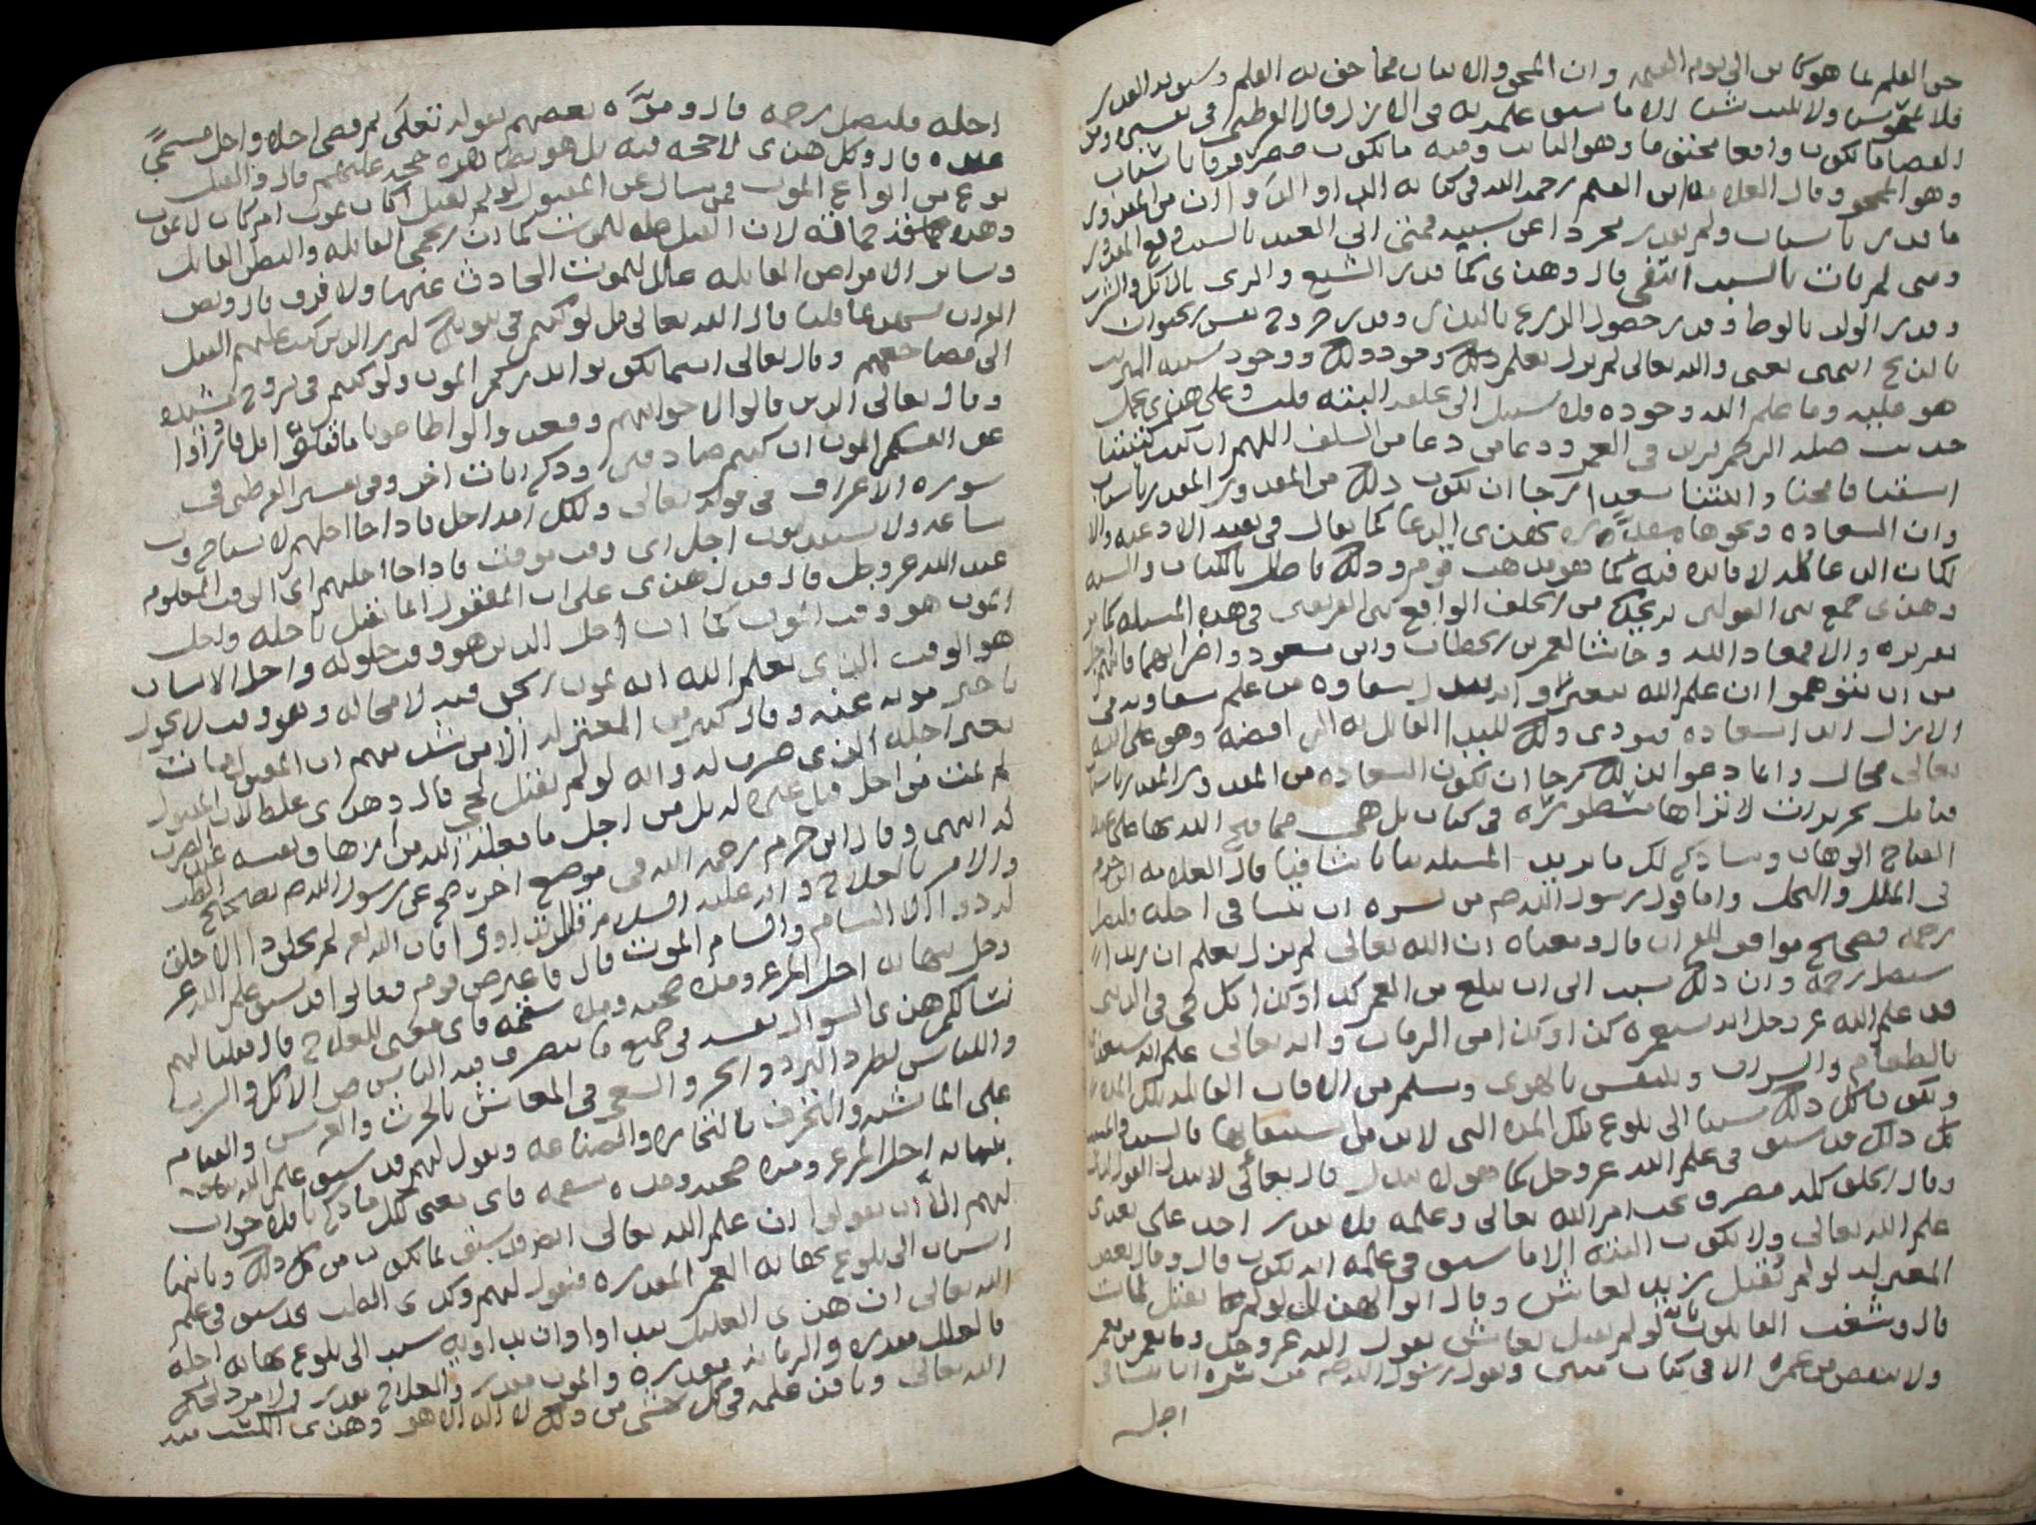 جف القلم بما هو كائن الى يوم القيمه وان المحو والاثبات مما جف به القلم وسبق به القدر
فلا يمحو ولا يثبت شيئا الا ما سبق علمه به في الازل قال القرطبي في تفسيره ومن
القضا ما يكون واقعا محتوما وهو الثابت ومنه ما يكون مصروفا باسباب
وهو الممحو وقال العلامه ابن القيم رحمه الله في كتابه الداء والدواء ان من المقدور
ما قدر باسباب ولم يقدر مجردا عن سببه فمتى اتى العبد بالسبب وقع المقدور
ومتى لم يات بالسبب انتفى قال وهذى كما قدر الشبع والرى بالاكل والشرب
وقدر الولد بالوطا وقدر حصول الزرع بالبذر وقدر خروج نفس الحيوان
بالذبح انتهى يعنى والله تعالى لم يزل يعلم ذلك وجود ذلك ووجود سببه المرتب
هو عليه وما علم الله وجوده فلا سبيل الى عدمه البته قلت وعلى هذى يحمل
حديث صلة الرحم تزيد في العمر ودعا من دعا من السلف اللهم ان كنت كتبتنا
اشقيا فامحنا واثبتنا سعدا رجا ان يكون ذلك من المقدور المقدر باسباب
وان السعاده ونحوها مقدره بهذى الدعا كما يقال في بقية الادعيه والا
لكان الدعا كله لا فايده فيه كما هو مذهب قوم وذلك باطل بالكتاب والسنه
وهذى جمع بين القولين من الخلف الواقع بين الفريقين في هذه المسله كما مر
تقريره والا فمعاذ الله وحاشا لعمر بن الخطاب وابن مسعود واضرابهما
من ان يتوهموا ان علم الله يتغير او انه يبدل شقاوة من علم شقاوته في
الازل الى السعاده فيودى ذلك للبدا القائل به الرافضة وهو على الله
تعالى محال وانما دعوا بذلك رجا ان تكون السعاده من المقدور المقدر باسباب
فتامل تحريرات لا تراها مسطوره في كتاب بل هي مما فتح الله بها على عبده
الفتاح الوهاب وساذكر لك ما يزيد المسله بيانا شافيا قال العلامه ابن حزم
في الملل والنحل واما قول رسول الله صم من سره ان ينسا في اجله فليصل
رحمه فصحيح موافق للقران قال ومعناه ان الله تعالى لم يزل يعلم ان زيدا
سيصل رحمه وان ذلك سبب الى ان يبلغ من العمر كذا وكذا وكل حي في الدنيا
قد علم الله عز وجل انه سيعمره كذا وكذا من الزمان وانه تعالى علم انه سيتغذا
بالطعام والشراب ويتنفس بالهوى ويسلم من الافات القاتله تلك المده
ويكون كل ذلك سببا الى بلوغ تلك المده التى لا بد من استيفائها فالسبب والمسبب
كل ذلك قد سبق في علم الله عز وجل كما هو لا يبدل قال تعالى لا يبدل القول لدى
وقال الخلق كله مصرف تحت امر الله تعالى وعلمه فلا يقدر احد على تعدى
علم الله تعالى ولا يكون البته الا ما سبق في علمه انه يكون قال وقال بعض
المعتزله لو لم يقتل زيد لعاش وقال ابو الهذيل لو لم يقتل لمات
قال وشغب القايلون بانه لو لم يقتل لعاش بقول الله عز وجل وما يعمر من معمر
ولا ينقص من عمره الا في كتاب مبين وبقول رسول الله صم من سره ان ينسا في
اجله
اجله فليصل رحمه قال وموّه بعضهم بقوله تعالى ثم قضى اجلا واجل مسمًى
عنده قال وكل هذى لا حجة فيه بل هو بظاهره حجة عليهم قال والقتل
نوع من انواع الموت فمن سال عن المقتول لو لم يقتل اكان يموت ام كان لا يموت
وهذه حماقة لان القتل علة للموت كما ان الحمى القاتله والبطن القاتل
وساير الامراض القاتله علل للموت الحادث عنها ولا فرق قال ونص
القران يشهد بما قلنا قال الله تعالى قل لو كنتم في بيوتكم لبرز الذين كتب عليهم القتل
الى مضاجعهم وقال تعالى اينما تكونوا يدرككم الموت ولو كنتم في بروج مشيده
وقال تعالى الذين قالوا لاخوانهم وقعدوا لو اطاعونا ما قتلوا قل فادرؤا
عن انفسكم الموت ان كنتم صادقين وذكر ايات اخر وفي تفسير القرطبي في
سوره الاعراف في قوله تعالى ولكل امه اجل فاذا جا اجلهم لا يستاخرون
ساعه ولا يستقدمون اجل اى وقت موقت فاذا جا اجلهم اى الوقت المعلوم
عند الله عز وجل قال فدل هذى على ان المقتول انما يقتل باجله واجل
الموت هو وقت الموت كما ان اجل الدين هو وقت حلوله واجل الانسان
هو الوقت الذى يعلم الله انه يموت الحى فيه لا محاله وهو وقت لا يجوز
تاخير موته عنه وقال كثير من المعتزله الا من شذ منهم ان المقتول مات
بغير اجله الذى ضرب له وانه لو لم يقتل لحى قال وهذى غلط لان المقتول
لم يمت من اجل قتل غيره له بل من اجل ما فعله الله من ازهاق نفسه عند الضرب
له انتهى وقال ابن حزم رحمه الله في موضع اخر صح عن رسول الله صم تصحيح الطب
والامر بالعلاج وانه عليه السلام قال تداوى فان الله لم يخلق دا الا خلق
له دوا الا السام والسام الموت قال فاعترض قوم فقالوا قد سبق علم الله عز
وجل بنهايه اجل المرء ومدة صحته ومدة سقمه فاى معنى للعلاج قال فقلنا لهم
نسالكم هذى السوال نفسه في جميع ما يتصرف فيه الناس من الاكل والشرب
واللباس لطرد البرد والحر والسعي في المعاش بالحرث والغرس والقيام
على الماشيه والتحرف بالتجاره والصناعه ونقول لهم قد سبق علم الله تعالى
بنهايه اجل المرء ومده صحته ومده سقمه فاى معنى لكل ما ذكرنا فلا جواب
لهم الا ان يقولوا ان علم الله تعالى ايضا قد سبق بما يكون من كل ذلك وبانها
اسباب الى بلوغ نهايه العمر المقدره فنقول لهم وكذى الطب قد سبق في علم
الله تعالى ان هذى العليل يتداوا وان تداويه سبب الى بلوغ نهايه اجله
فالعلل مقدره والزمانه مقدره والموت مقدر والعلاج مقدر ولا مرد لحكم
الله تعالى ونافذ علمه في كل شى من ذلك لا اله الا هو وهذى